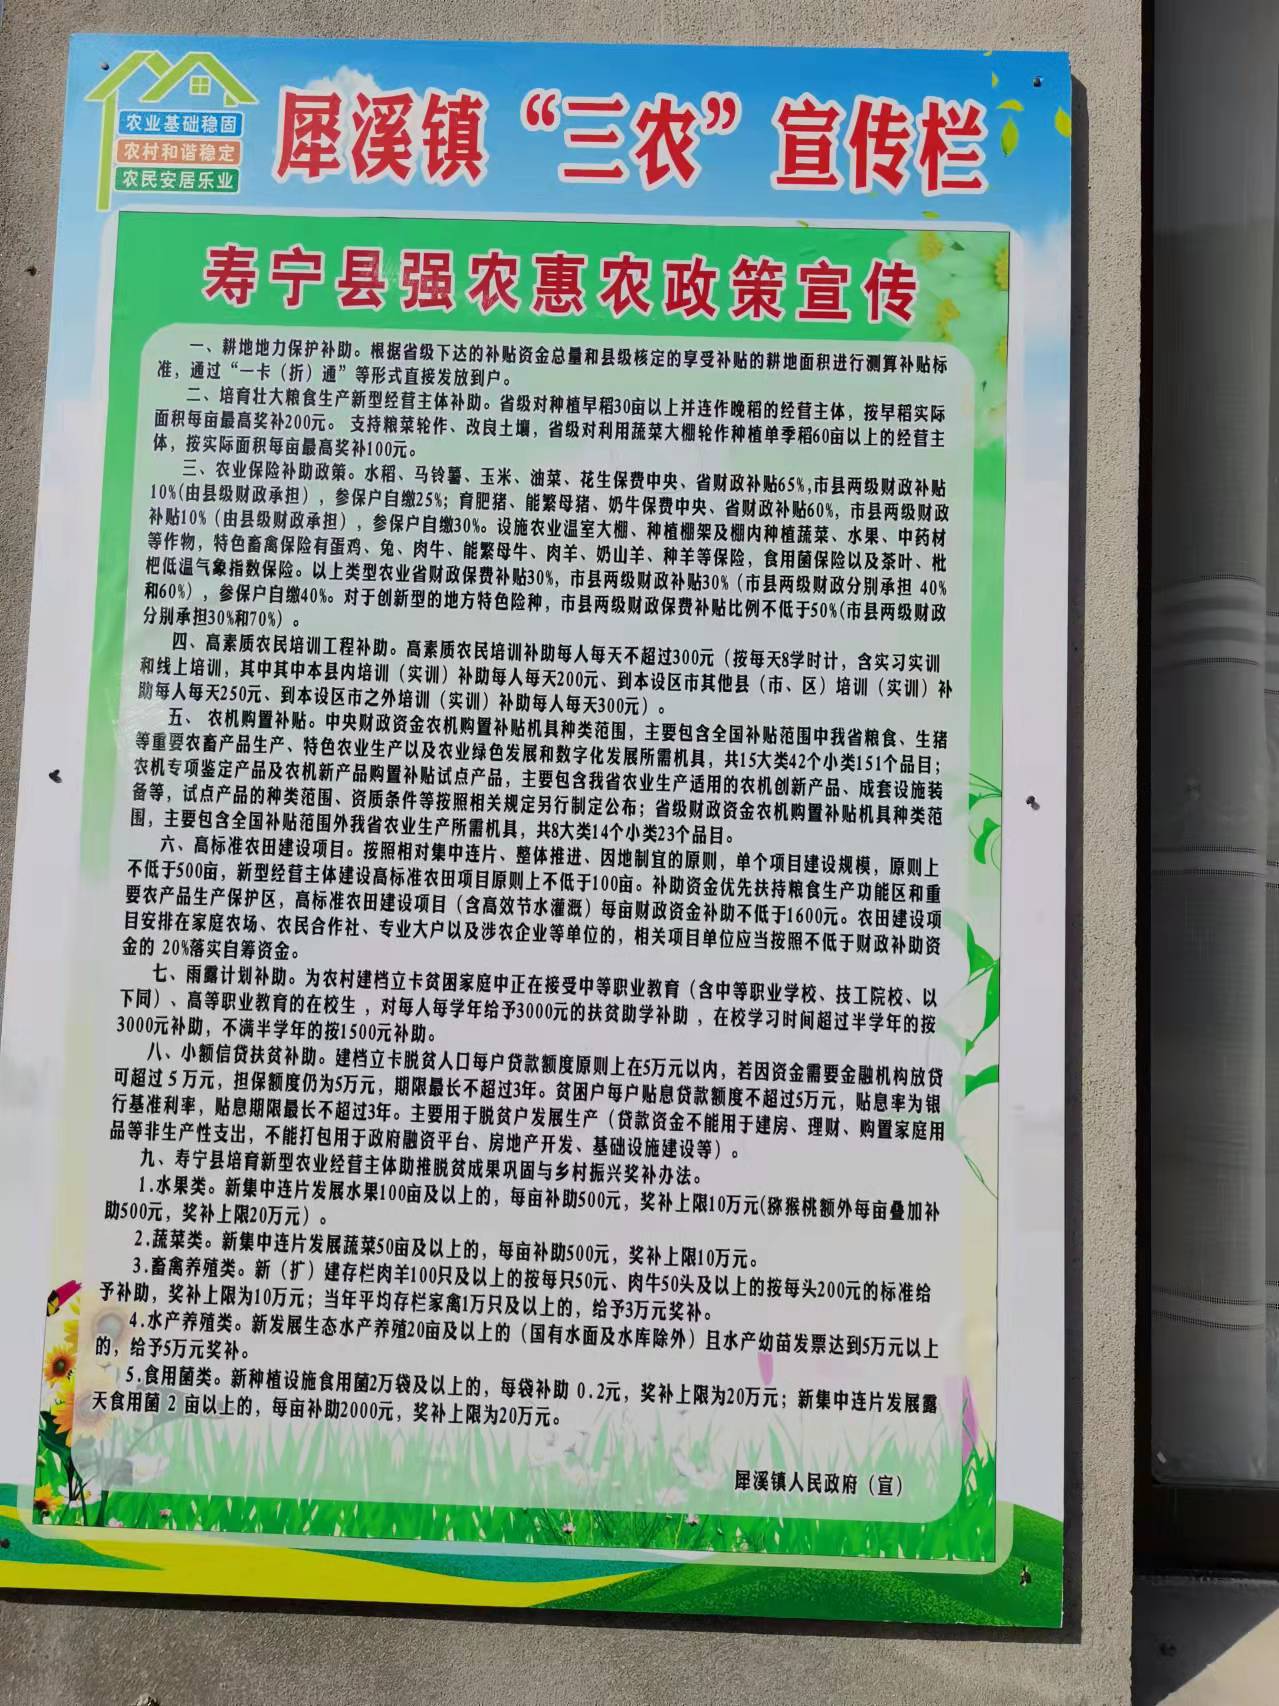 农业基础稳固
农村和谐稳定
农民安居乐业
犀溪镇“三农”宣传栏
寿宁县强农惠农政策宣传
一、耕地地力保护补助。根据省级下达的补贴资金总量和县级核定的享受补贴的耕地面积进行测算补贴标
准，通过“一卡（折）通”等形式直接发放到户。
二、培育壮大粮食生产新型经营主体补助。省级对种植早稻30亩以上并连作晚稻的经营主体，按早稻实际
面积每亩最高奖补200元。 支持粮菜轮作、改良土壤，省级对利用蔬菜大棚轮作种植单季稻60亩以上的经营主
体，按实际面积每亩最高奖补100元。
三、农业保险补助政策。水稻、马铃薯、玉米、油菜、花生保费中央、省财政补贴65%,市县两级财政补贴
10%(由县级财政承担），参保户自缴25%；育肥猪、能繁母猪、奶牛保费中央、省财政补贴60%，市县两级财政
补贴10%（由县级财政承担），参保户自缴30%。设施农业温室大棚、种植棚架及棚内种植蔬菜、水果、中药材
等作物，特色畜禽保险有蛋鸡、兔、肉牛、能繁母牛、肉羊、奶山羊、种羊等保险，食用菌保险以及茶叶、枇
杷低温气象指数保险。以上类型农业省财政保费补贴30%，市县两级财政补贴30%（市县两级财政分别承担 40%
和60%），参保户自缴40%。对于创新型的地方特色险种，市县两级财政保费补贴比例不低于50%(市县两级财政
分别承担30%和70%）。
四、高素质农民培训工程补助。高素质农民培训补助每人每天不超过300元（按每天8学时计，含实习实训
和线上培训，其中其中本县内培训（实训）补助每人每天200元、到本设区市其他县（市、区）培训（实训）补
助每人每天250元、到本设区市之外培训（实训）补助每人每天300元）。
五、 农机购置补贴。中央财政资金农机购置补贴机具种类范围，主要包含全国补贴范围中我省粮食、生猪
等重要农畜产品生产、特色农业生产以及农业绿色发展和数字化发展所需机具，共15大类42个小类151个品目；
农机专项鉴定产品及农机新产品购置补贴试点产品，主要包含我省农业生产适用的农机创新产品、成套设施装
备等，试点产品的种类范围、资质条件等按照相关规定另行制定公布；省级财政资金农机购置补贴机具种类范
围，主要包含全国补贴范围外我省农业生产所需机具，共8大类14个小类23个品目。
六、高标准农田建设项目。按照相对集中连片、整体推进、因地制宜的原则，单个项目建设规模，原则上
不低于500亩，新型经营主体建设高标准农田项目原则上不低于100亩。补助资金优先扶持粮食生产功能区和重
要农产品生产保护区，高标准农田建设项目（含高效节水灌溉）每亩财政资金补助不低于1600元。农田建设项
目安排在家庭农场、农民合作社、专业大户以及涉农企业等单位的，相关项目单位应当按照不低于财政补助资
金的 20%落实自筹资金。
七、雨露计划补助。为农村建档立卡贫困家庭中正在接受中等职业教育（含中等职业学校、技工院校、以
下同）、高等职业教育的在校生 ，对每人每学年给予3000元的扶贫助学补助 ，在校学习时间超过半学年的按
3000元补助，不满半学年的按1500元补助。
八、小额信贷扶贫补助。建档立卡脱贫人口每户贷款额度原则上在5万元以内，若因资金需要金融机构放贷
可超过 5 万元，担保额度仍为5万元，期限最长不超过3年。贫困户每户贴息贷款额度不超过5万元，贴息率为银
行基准利率，贴息期限最长不超过3年。主要用于脱贫户发展生产（贷款资金不能用于建房、理财、购置家庭用
品等非生产性支出，不能打包用于政府融资平台、房地产开发、基础设施建设等）。
九、寿宁县培育新型农业经营主体助推脱贫成果巩固与乡村振兴奖补办法。
1.水果类。新集中连片发展水果100亩及以上的，每亩补助500元，奖补上限10万元(猕猴桃额外每亩叠加补
助500元，奖补上限20万元）。
2.蔬菜类。新集中连片发展蔬菜50亩及以上的，每亩补助500元，奖补上限10万元。
3.畜禽养殖类。新（扩）建存栏肉羊100只及以上的按每只50元、肉牛50头及以上的按每头200元的标准给
予补助，奖补上限为10万元；当年平均存栏家禽1万只及以上的，给予3万元奖补。
4.水产养殖类。新发展生态水产养殖20亩及以上的（国有水面及水库除外）且水产幼苗发票达到5万元以上
的，给予5万元奖补。
5.食用菌类。新种植设施食用菌2万袋及以上的，每袋补助 0.2元，奖补上限为20万元；新集中连片发展露
天食用菌 2 亩以上的，每亩补助2000元，奖补上限为20万元。
犀溪镇人民政府（宣）